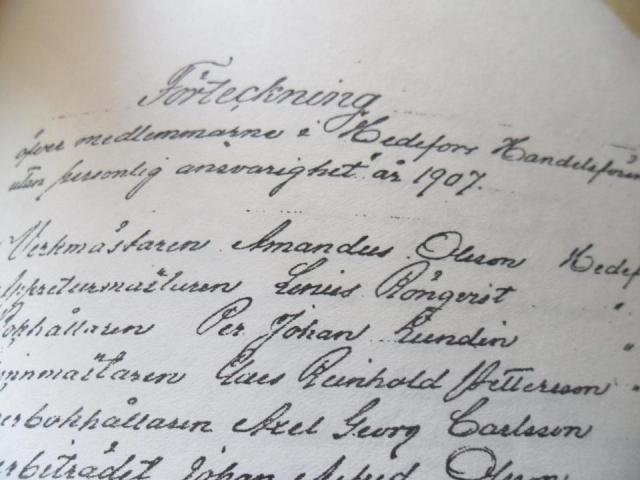 Förteckning
öfver medlemmarne i Hedefors Handelsfören
utan personlig ansvarighet år 1907.
Verkmästaren Amandus Olsson Hedef
Appreturmästaren Linus Rönqvist "
Bokhållaren Per Johan Lundin "
innmästaren Reinhold Pettersson "
erbokhållaren Axel Georg Carlsson
erbiträdet Johan Alfred Olsson